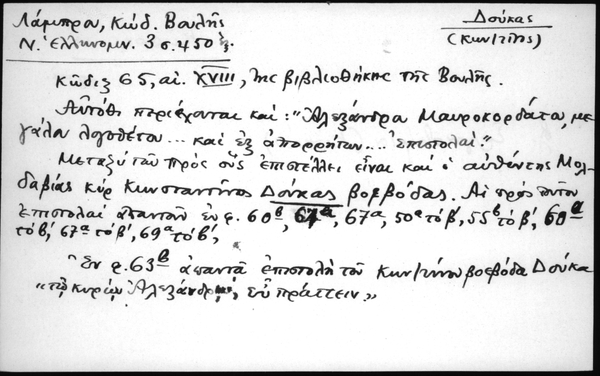 Λάμπρου, Κώδ. Βουλῆς
Δούκας
Ν. Ἑλληνομν. 3 σ. 450 ἑξ.
(Κων/τῖνος)
Κῶδιξ 65, αἰ. XVIII, τῆς βιβλιοθήκης τῆς Βουλῆς.
Αὐτόθι περιέχονται καὶ: "Ἀλεξάνδρου Μαυροκορδάτου, με-
γάλου λογοθέτου... καὶ ἐξ ἀπορρήτων... Ἐπιστολαί."
Μεταξὺ τῶν πρὸς οὓς ἐπιστέλλει εἶναι καὶ ὁ αὐθέντης Μολ-
δαβίας κὺρ Κωνσταντῖνος Δούκας βοεβόδας. Αἱ πρὸς τοῦτον
ἐπιστολαὶ ἀπαντοῦν ἐν φ. 60β, 67α, 67α, 50α τὸ β', 55β τὸ β', 60α
τὸ β', 67α τὸ β', 69α τὸ β',
Ἐν φ. 63β ἀπαντᾷ ἐπιστολὴ τοῦ Κων/τίνου βοεβόδα Δούκα
"τῷ κυρίῳ Ἀλεξάνδρῳ, εὖ πράττειν"